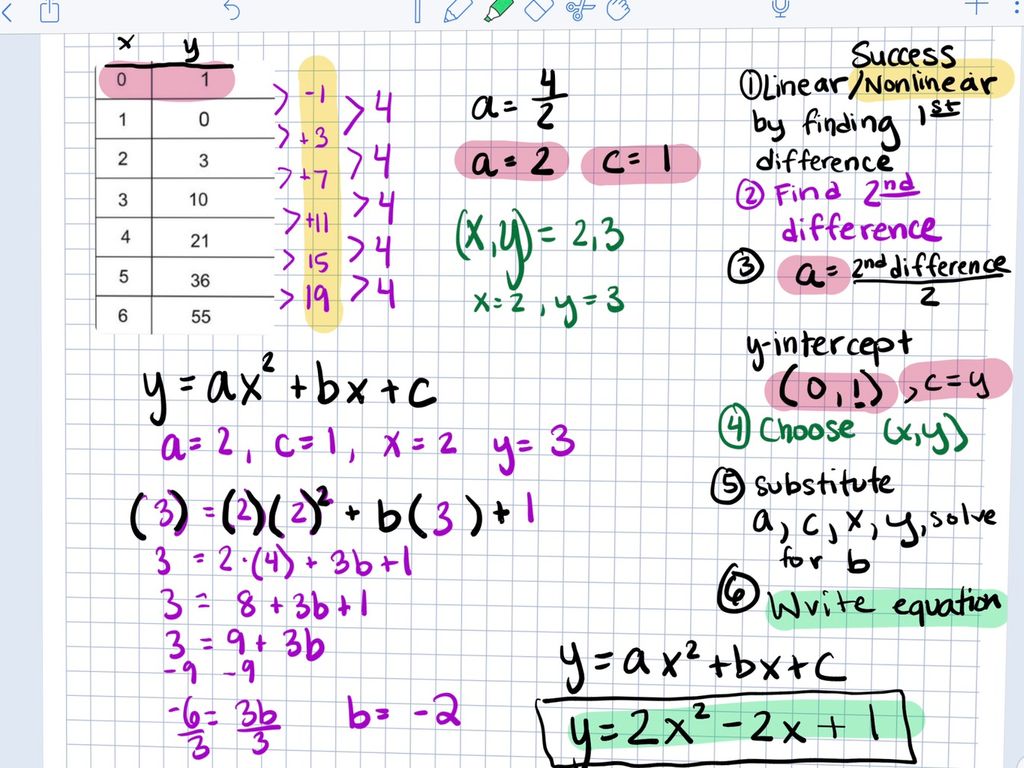 x y
0 1
1 0
2 3
3 10
4 21
5 36
6 55
> -1
> +3
> +7
> +11
> 15
> 19
> 4
> 4
> 4
> 4
> 4
a = 4/2
a = 2 c = 1
(x,y) = 2,3
x = 2 , y = 3
y = ax² + bx + c
a = 2, c = 1, x = 2 y = 3
(3) = (2)(2)² + b(3) + 1
3 = 2·(4) + 3b + 1
3 = 8 + 3b + 1
3 = 9 + 3b
-9 -9
-6/3 = 3b/3 b = -2
Success
① Linear/Nonlinear
by finding 1st
difference
② Find 2nd
difference
③ a = 2nd difference/2
y-intercept
(0,1), c = y
④ Choose (x,y)
⑤ substitute
a, c, x, y, solve
for b
⑥ Write equation
y = ax² + bx + c
y = 2x² - 2x + 1